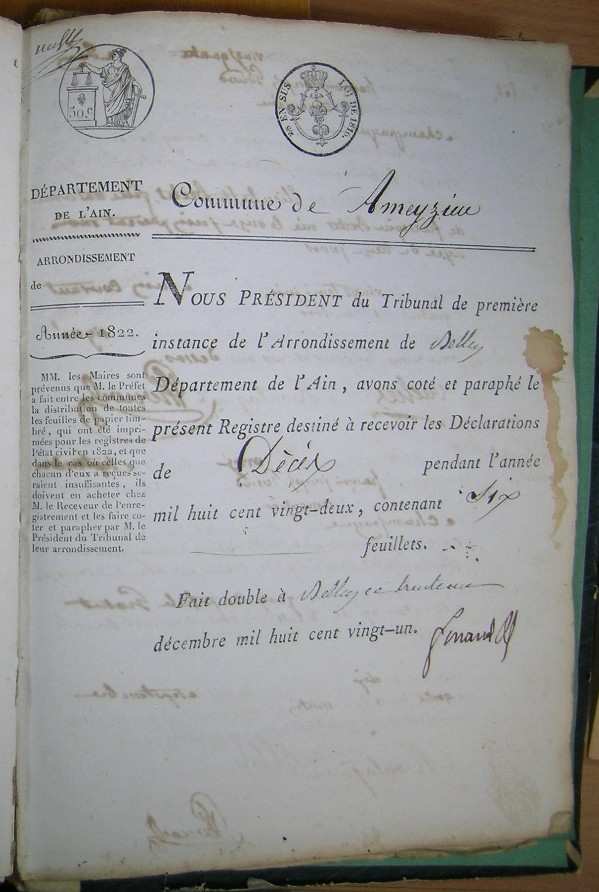 50 c
⅒ EN SUS
LOI DE 1816.
DÉPARTEMENT
DE L'AIN.
ARRONDISSEMENT
de
Année 1822.
MM. les Maires sont
prévenus que M. le Préfet
a fait entre les communes
la distribution de toutes
les feuilles de papier tim-
bré, qui ont été impri-
mées pour les registres de
l'état civil en 1822, et que
dans le cas où celles que
chacun d'eux a reçues se-
raient insuffisantes, ils
doivent en acheter chez
M. le Receveur de l'enre-
gistrement et les faire co-
ter et parapher par M. le
Président du Tribunal de
leur arrondissement.
Commune de Ameyzieu
NOUS PRÉSIDENT du Tribunal de première
instance de l'Arrondissement de Belley
Département de l'Ain, avons coté et paraphé le
présent Registre destiné à recevoir les Déclarations
de Décès pendant l'année
mil huit cent vingt-deux, contenant Six
feuillets.
Fait double à Belley ce trente un
décembre mil huit cent vingt-un.